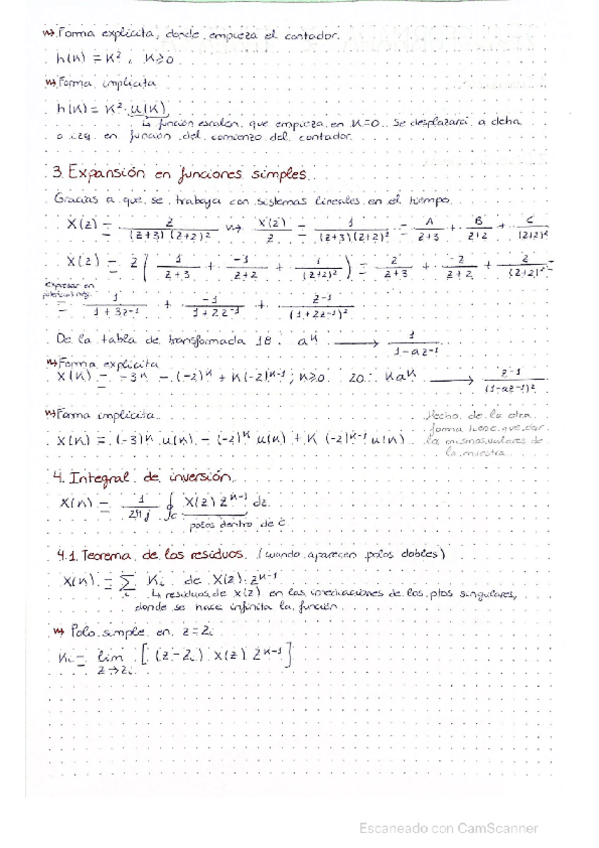 ↝ Forma explícita, donde empieza el contador.
h(k) = k², k≥0
↝ Forma implícita
h(k) = k² · u(k)
↳ función escalón que empieza en k=0. Se desplazará a dcha
o izq. en función del comienzo del contador.
3. Expansión en funciones simples.
Gracias a que se trabaja con sistemas lineales en el tiempo.
X(z) = z / (z+3)(z+2)² ↝ X(z)/z = 1 / (z+3)(z+2)² = A/(z+3) + B/(z+2) + C/(z+2)²
X(z) = z ( 1/(z+3) + -1/(z+2) + 1/(z+2)² ) = z/(z+3) + -z/(z+2) + z/(z+2)² =
expresar en
= 1/(1+3z⁻¹) + -1/(1+2z⁻¹) + z⁻¹/(1+2z⁻¹)²
De la tabla de transformada 18: aᵏ ⟶ 1/(1-az⁻¹)
↝ Forma explícita
X(k) = -3ᵏ - (-2)ᵏ + k(-2)ᵏ⁻¹; k≥0 20: kaᵏ ⟶ z⁻¹/(1-az⁻¹)²
↝ Forma implícita
X(k) = (-3)ᵏ u(k) - (-2)ᵏ u(k) + k (-2)ᵏ⁻¹ u(k)
Hecho de la otra
forma tiene que dar
los mismos valores de
la muestra
4. Integral de inversión
X(k) = 1/2πj ∮c X(z) zᵏ⁻¹ dz
polos dentro de c
4.1. Teorema de los residuos. (cuando aparecen polos dobles)
X(k) = ∑ᵢ Kᵢ de X(z) · zᵏ⁻¹
↳ residuos de X(z) en las inmediaciones de los ptos singulares,
donde se hace infinita la función.
↝ Polo simple en z=zᵢ
Kᵢ = lim z→zᵢ [ (z-zᵢ) X(z) zᵏ⁻¹ ]
Escaneado con CamScanner